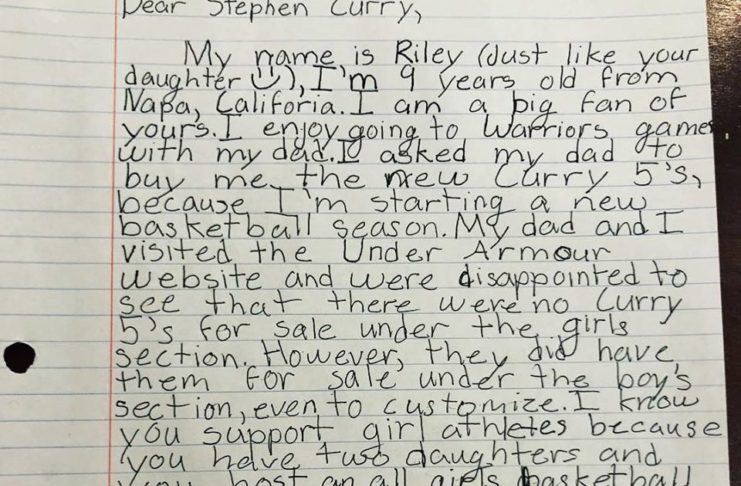 Dear Stephen Curry,
My name is Riley (Just like your
daughter ☺), I'm 9 years old from
Napa, Califoria. I am a big fan of
yours. I enjoy going to Warriors games
with my dad. I asked my dad to
buy me the new Curry 5's,
because I'm starting a new
basketball season. My dad and I
visited the Under Armour
website and were disappointed to
see that there were no Curry
5's for sale under the girls
section. However, they did have
them for sale under the boy's
section, even to customize. I know
you support girl athletes because
you have two daughters and
you host an all girls basketball